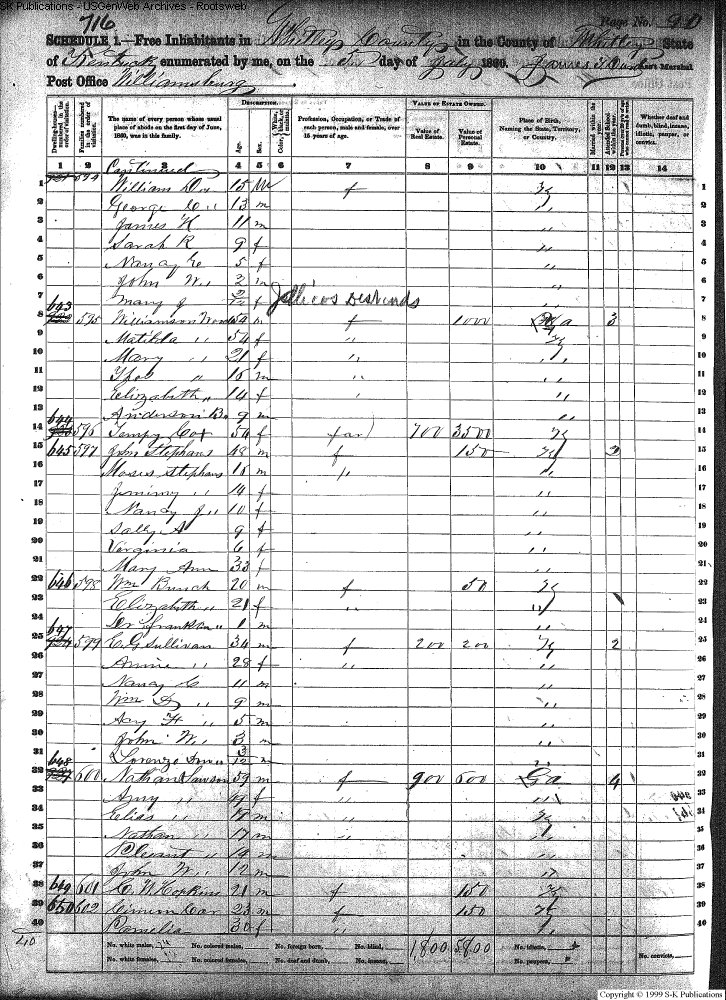 S-K Publications - USGenWeb Archives - Rootsweb
716
Page No. 90
SCHEDULE 1.—Free Inhabitants in Whitley County in the County of Whitley State
of Kentucky enumerated by me, on the day of July 1860. James Ass't Marshal
Post Office Williamsburg
Dwelling-houses—numbered in the order of visitation.
Families numbered in the order of visitation.
The name of every person whose usual place of abode on the first day of June, 1860, was in this family.
DESCRIPTION.
Age.
Sex.
Color, White, black, or mulatto.
Profession, Occupation, or Trade of each person, male and female, over 15 years of age.
VALUE OF ESTATE OWNED.
Value of Real Estate.
Value of Personal Estate.
Place of Birth, Naming the State, Territory, or Country.
Married within the year.
Attended School within the year.
Whether deaf and dumb, blind, insane, idiotic, pauper, or convict.
1 2 3 4 5 6 7 8 9 10 11 12 13 14
594 Continued
1 William 15 m f Ky 1
2 George 13 m " 2
3 James K 11 m " 3
4 Sarah R 9 f " 4
5 Nancy E 5 f " 5
6 John W 3 m " 6
7 Mary J f Jellicos Deshends " 7
643
8 595 Williamson Woods m f 1000 3 8
9 Matilda " 54 f " Ky 9
10 Mary " 21 f " " 10
11 " 15 m " " 11
12 Elizabeth " 14 f " " 12
13 Anderson 9 m " 13
644
14 596 Tempy Cox 54 f far 700 3500 Ky 14
15 645 597 John Stephans 48 m f 150 Ky 15
16 Moses Stephans 16 m " " 16
17 Jimimy " 14 f " 17
18 Nancy J " 10 f " 18
19 Sally A 9 f " 19
20 Virginia 6 f " 20
21 Mary Ann 33 f " 21
22 646 598 Wm Bunch 20 m f 50 Ky 22
23 Elizabeth " 21 f " " 23
24 Franklin " 1 m " 24
647
25 599 E G Sullivan 34 m f 200 200 Ky 2 25
26 Annie " 28 f " " 26
27 Nancy C 11 m " 27
28 Wm D " 9 m " 28
29 " 5 m " 29
30 John W " 3 m " 30
31 Lorenzo " 3/12 m " 31
648
32 600 Nathan Lawson 59 m f 900 600 Ga 4 32
33 Amy " 49 f " " 33
34 Elias " 19 m " Ky 34
35 Nathan " 17 m " " 35
36 Pleasant " 14 m " 36
37 John W " 12 m " 37
38 649 601 C W Hopkins 21 m f 150 Ky 38
39 650 602 23 m f 150 Ky 39
40 Pamelia 30 f " " 40
40
No. white males, No. colored males, No. foreign born, No. blind, 1,800 5800 No. idiotic,
No. white females, No. colored females, No. deaf and dumb, No. insane, No. paupers, No. convicts,
Copyright © 1999 S-K Publications